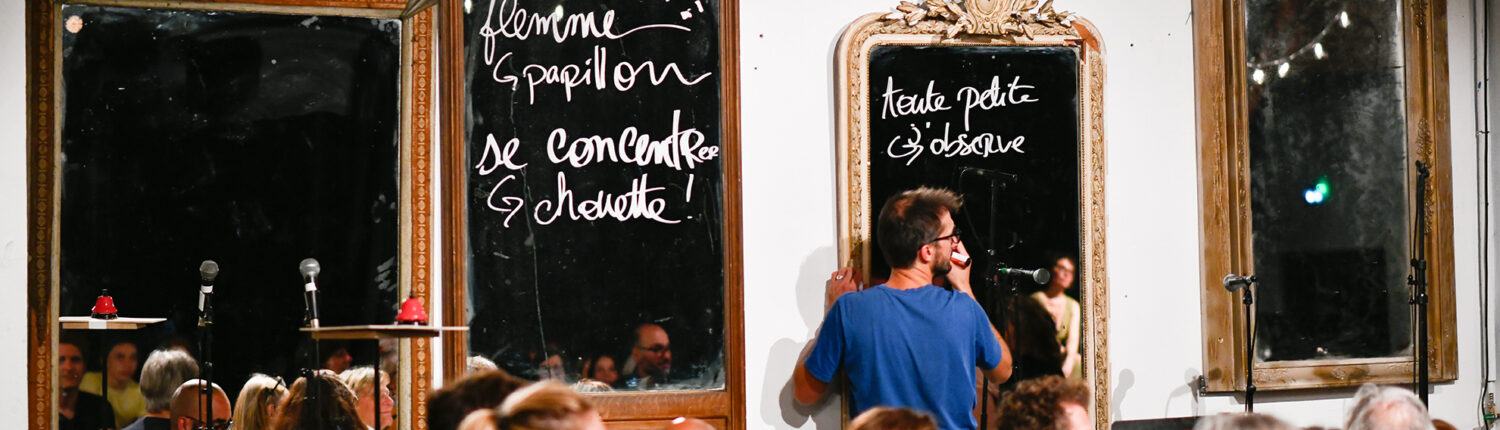 flemme
↪ papillon
se concentrer
↪ chouette !
toute petite
↪ j'observe